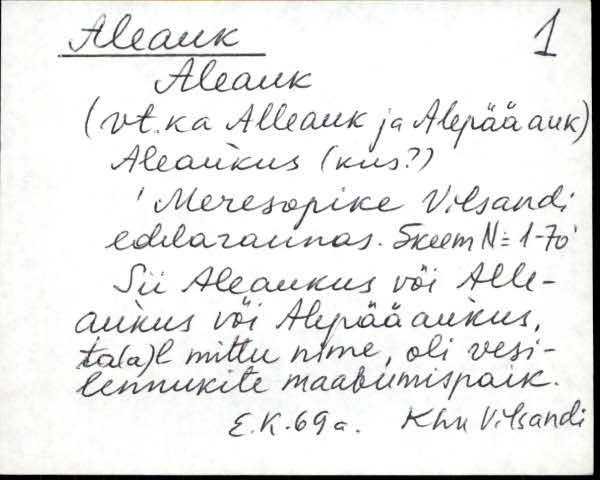 Aleauk 1
Aleauk
(vt. ka Alleauk ja Alepääauk)
Aleaùkus (kus?)
' Meresopike Vilsandi
edelarannas. Skeem N= 1-70'
Sii Aleaukus või Alle-
aùkus või Alepääaùkus,
ta(a)l mittu nime, oli vesi-
lennukite maabumispaik.
E.K. 69 a. Khn Vilsandi